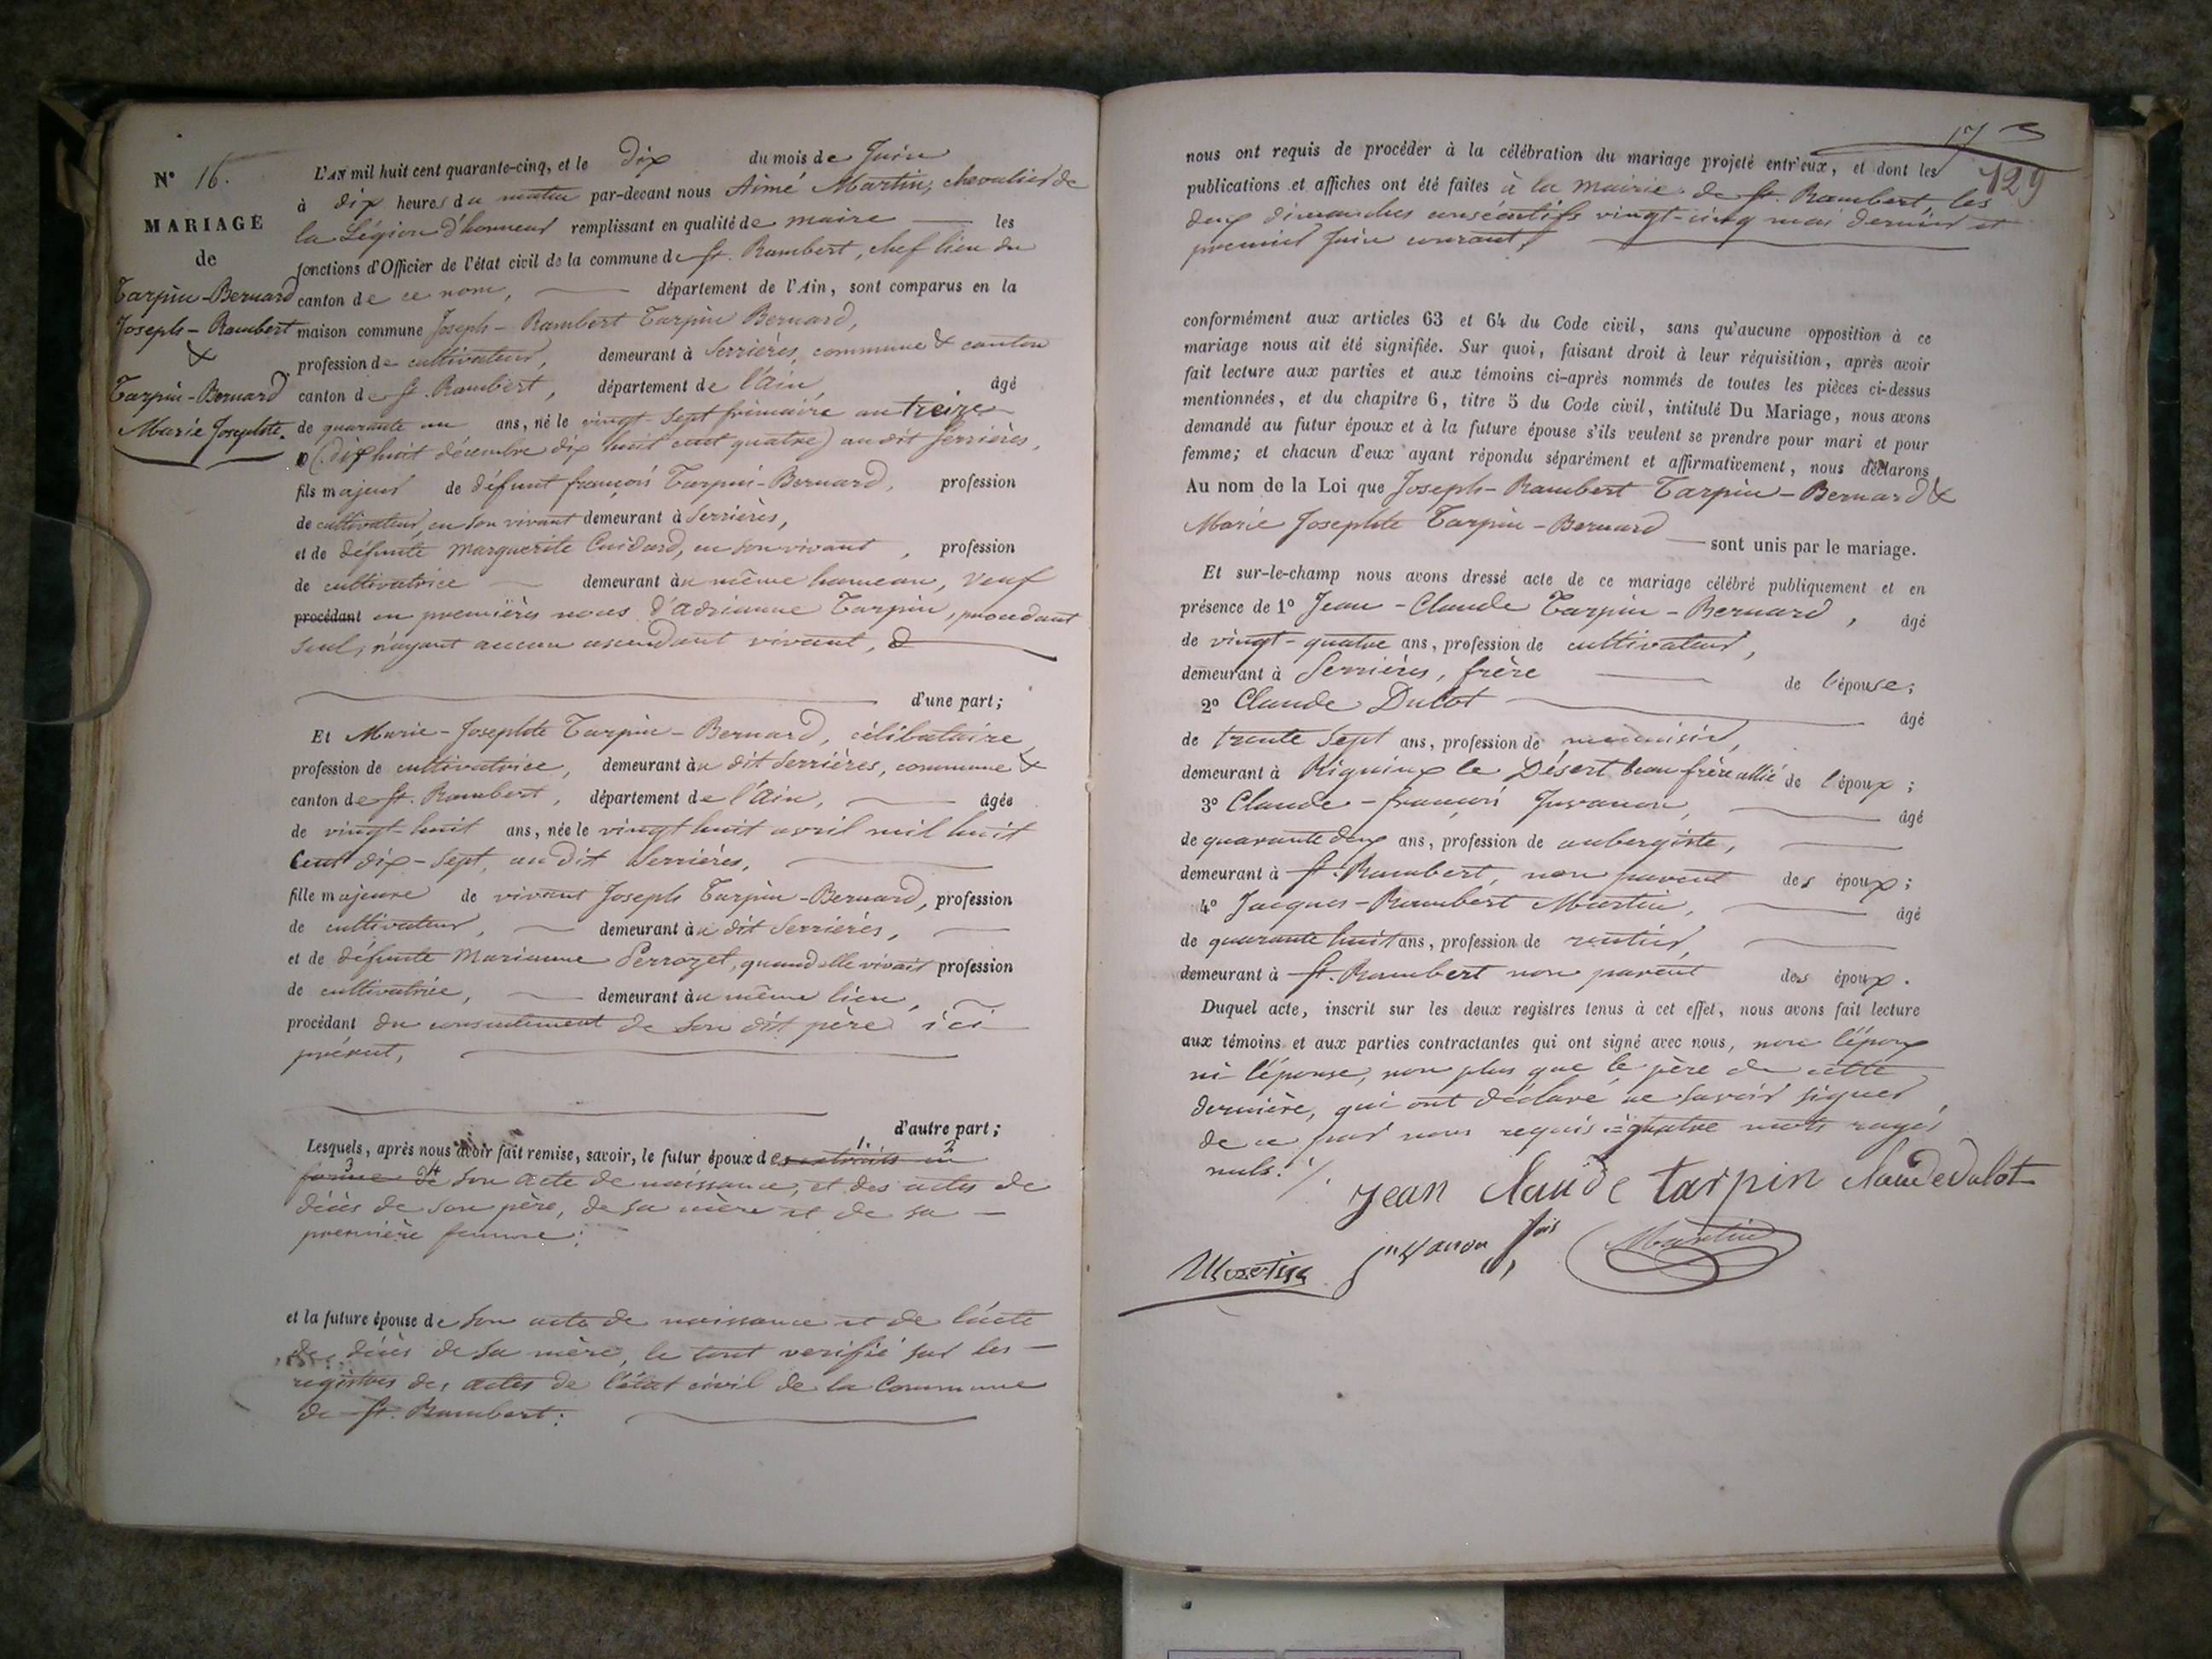 N° 16.
MARIAGE
de
Tarpin-Bernard
Joseph-Rambert
&
Tarpin-Bernard
Marie Josephte.
L'AN mil huit cent quarante-cinq, et le dix du mois de Juin
à dix heures du matin par-devant nous Aimé Martin, chevalier de
la Légion d'honneur remplissant en qualité de maire les
fonctions d'Officier de l'état civil de la commune de St. Rambert, chef lieu du
canton de ce nom, département de l'Ain, sont comparus en la
maison commune Joseph-Rambert Tarpin Bernard,
profession de cultivateur, demeurant à Serrières, commune & canton
canton de St. Rambert, département de l'Ain, âgé
de quarante un ans, né le vingt-sept frimaire an treize
(dix huit décembre dix huit cent quatre) au dit Serrières,
fils majeur de défunt françois Tarpin-Bernard, profession
de cultivateur, en son vivant demeurant à Serrières,
et de défunte Marguerite Cuidard, en son vivant, profession
de cultivatrice demeurant au même hameau, veuf
procédant en premières noces d'Adrianne Tarpin, procédant
seul, n'ayant aucun ascendant vivant,
d'une part;
Et Marie-Josephte Tarpin-Bernard, célibataire
profession de cultivatrice, demeurant au dit Serrières, commune &
canton de St. Rambert, département de l'Ain, âgée
de vingt-huit ans, née le vingt huit avril mil huit
cent dix-sept, au dit Serrières,
fille majeure de vivant Joseph Tarpin-Bernard, profession
de cultivateur, demeurant au dit Serrières,
et de défunte Marianne Perrozet, quand elle vivait profession
de cultivatrice, demeurant au même lieu,
procédant du consentement de son dit père ici
présent,
d'autre part;
Lesquels, après nous avoir fait remise, savoir, le futur époux des extraits en
forme de son acte de naissance, et des actes de
décès de son père, de sa mère et de sa
première femme;
et la future épouse de son acte de naissance et de l'acte
de décès de sa mère, le tout verifié sur les
registres des actes de l'état civil de la Commune
de St. Rambert;
17
129
nous ont requis de procéder à la célébration du mariage projeté entr'eux, et dont les
publications et affiches ont été faites à la Mairie de St. Rambert, les
deux dimanches consécutifs vingt-cinq mai dernier et
premier Juin courant,
conformément aux articles 63 et 64 du Code civil, sans qu'aucune opposition à ce
mariage nous ait été signifiée. Sur quoi, faisant droit à leur réquisition, après avoir
fait lecture aux parties et aux témoins ci-après nommés de toutes les pièces ci-dessus
mentionnées, et du chapitre 6, titre 5 du Code civil, intitulé Du Mariage, nous avons
demandé au futur époux et à la future épouse s'ils veulent se prendre pour mari et pour
femme; et chacun d'eux ayant répondu séparément et affirmativement, nous déclarons
Au nom de la Loi que Joseph-Rambert Tarpin-Bernard &
Marie Josephte Tarpin-Bernard
sont unis par le mariage.
Et sur-le-champ nous avons dressé acte de ce mariage célébré publiquement et en
présence de 1° Jean-Claude Tarpin-Bernard, âgé
de vingt-quatre ans, profession de cultivateur,
demeurant à Serrières, frère de l'épouse;
2° Claude Dulot âgé
de trente sept ans, profession de menuisier,
demeurant à Rignieux le Désert beau frère allié de l'époux;
3° Claude-françois Juvanon, âgé
de quarante deux ans, profession de aubergiste,
demeurant à St. Rambert, non parent des époux;
4° Jacques-Rambert Martin, âgé
de quarante huit ans, profession de rentier,
demeurant à St. Rambert non parent des époux.
Duquel acte, inscrit sur les deux registres tenus à cet effet, nous avons fait lecture
aux témoins et aux parties contractantes qui ont signé avec nous, non l'époux
ni l'épouse, non plus que le père de cette
dernière, qui ont déclaré ne savoir signer,
de ce par nous requis = quatre mots rayés
nuls. ./.
Jean Claude tarpin Claude Dulot
Martin Juvanon fois Martin